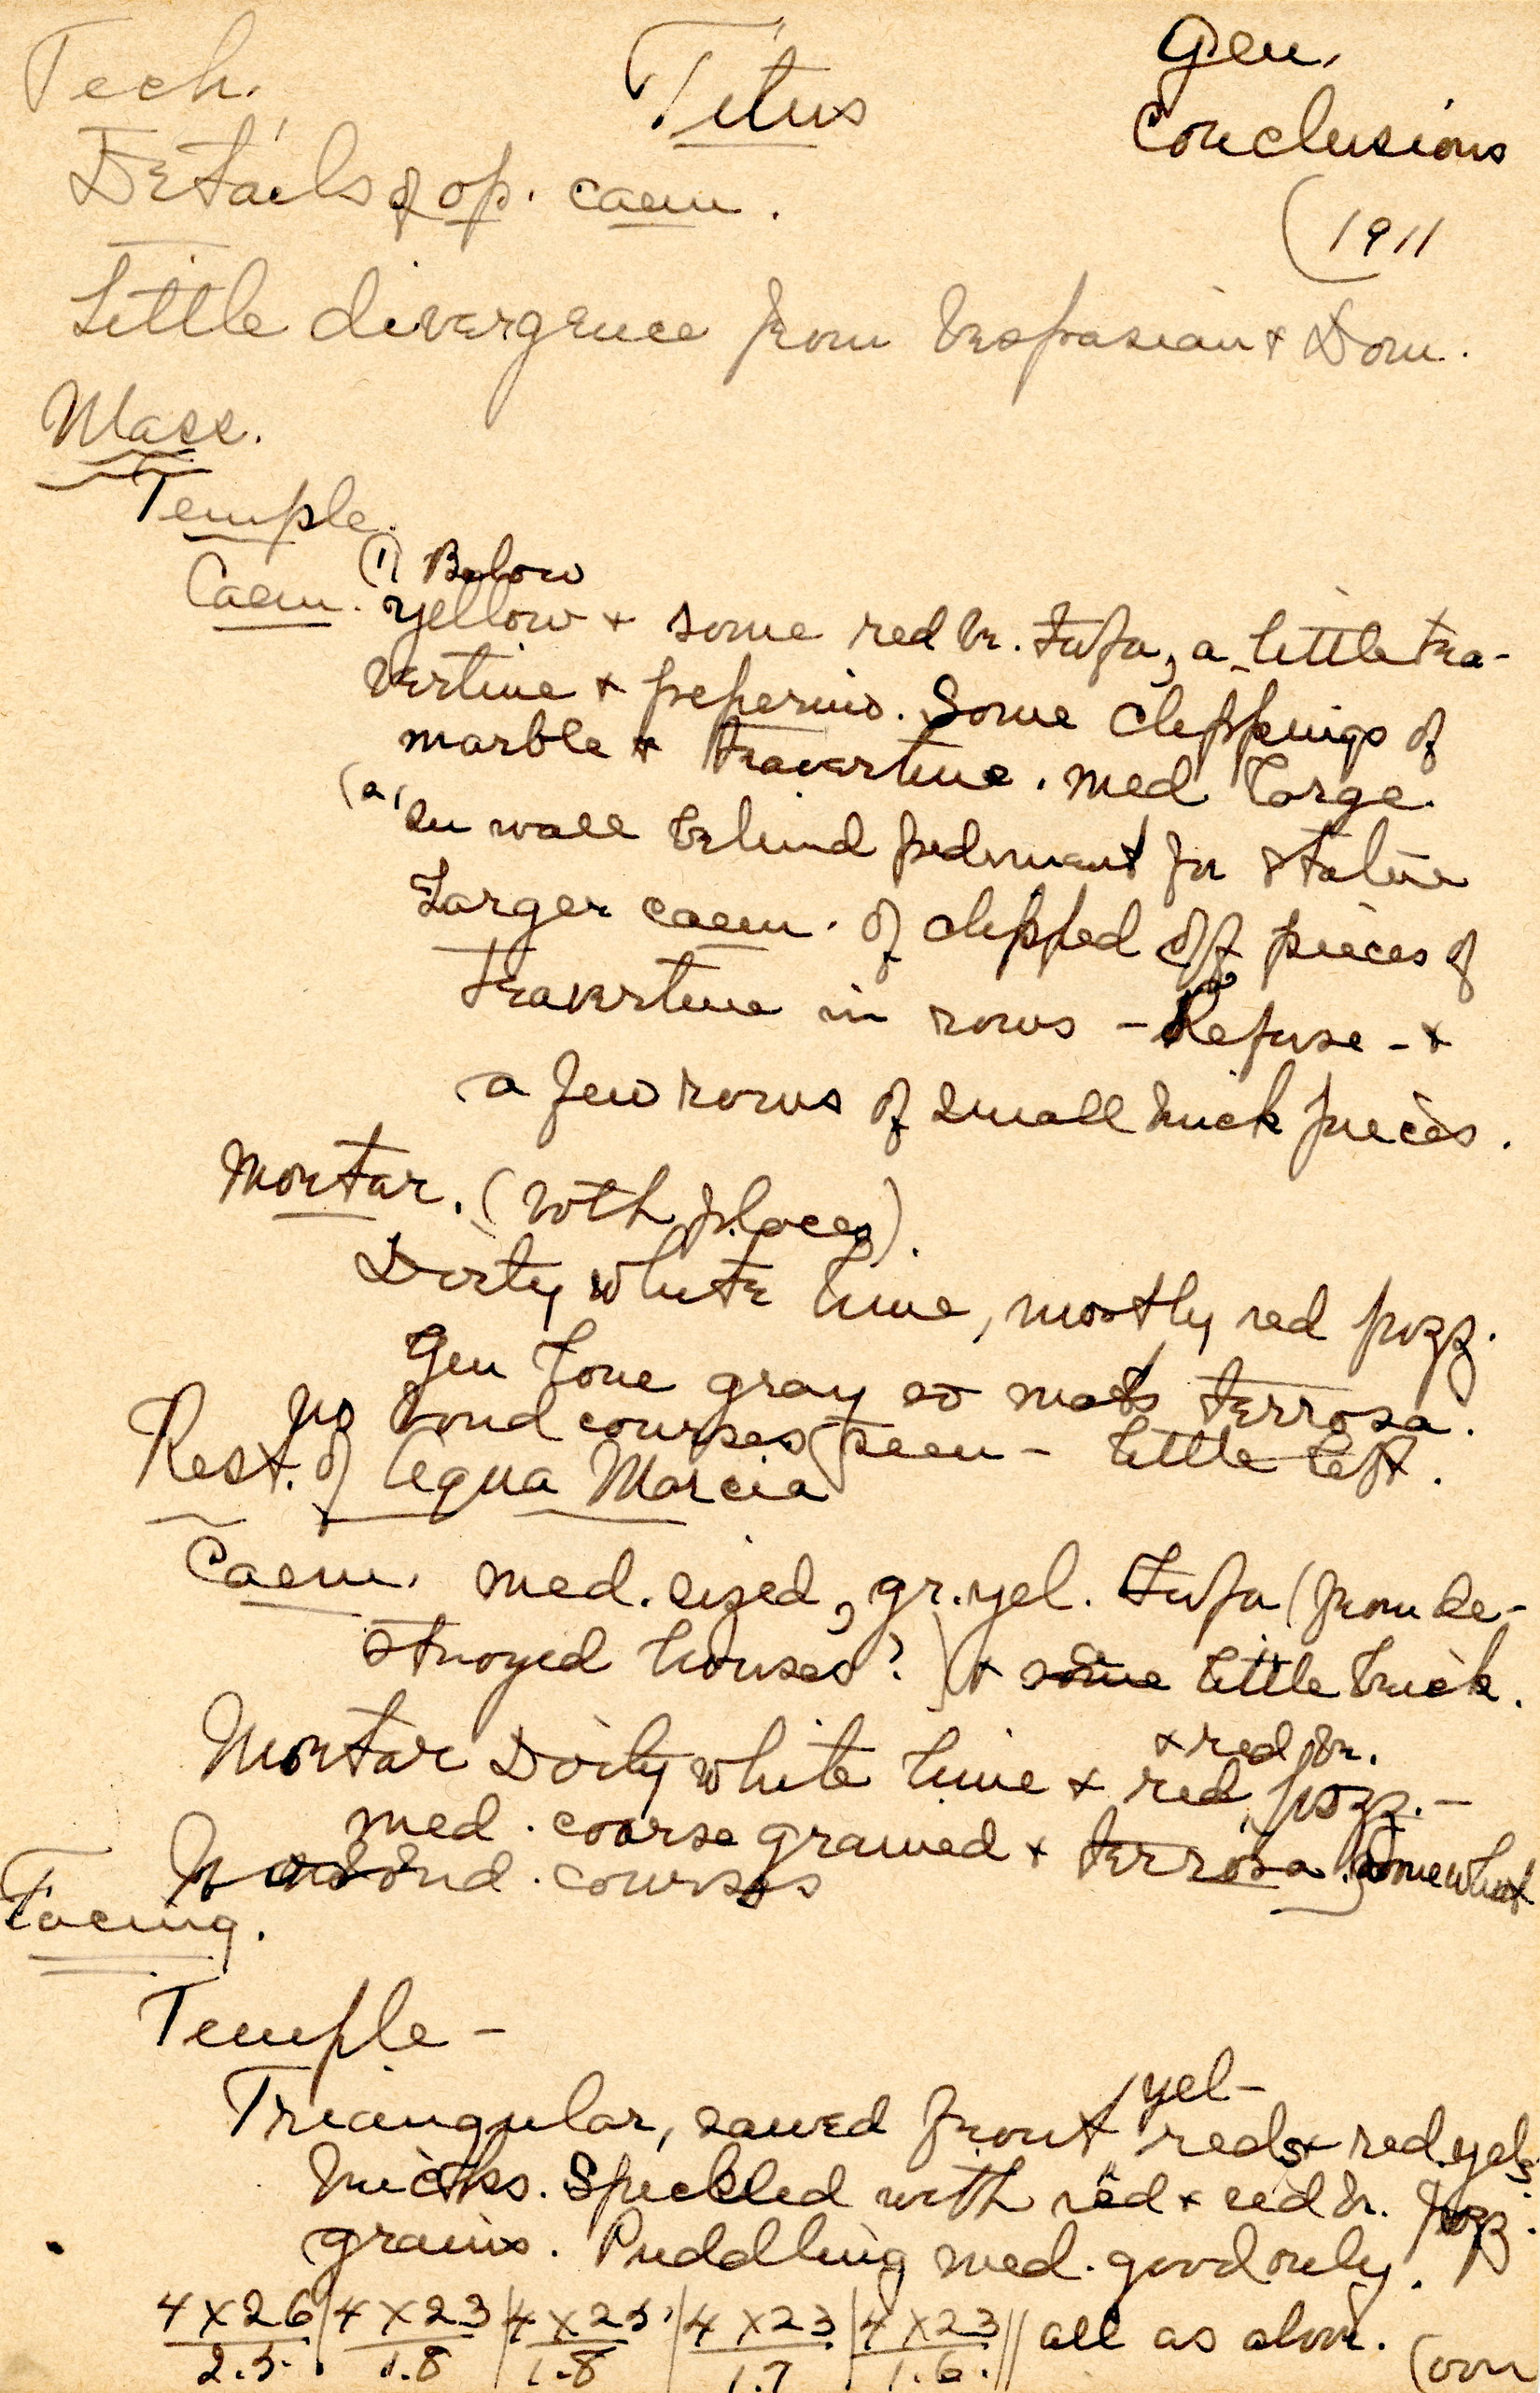 Tech. Titus Gen.
Conclusions
Details of op. caem.
(1911
Little divergence from Vespasian & Dom.
Mass.
Temple.
Caem. (1) Below
yellow & some red br. tufa, a little tra-
vertine & peperino. Some clippings of
marble & travertine. Med large.
(2) In wall behind pediment for statue
Larger caem. of clipped off pieces of
travertine in rows - Refuse - &
a few rows of small brick pieces.
Mortar. (both places).
Dirty white lime, mostly red pozz.
Gen tone gray so not terrosa.
No bond courses seen - little left.
Rest. of Aqua Marcia
Caem. med. sized, gr. yel. tufa (from de-
stroyed houses?) & some little brick.
& red br.
Mortar Dirty white lime & red pozz. -
med. coarse grained & terrosa somewhat
No bond. courses
Facing.
Temple -
yel -
Triangular, sawed front reds & red. yels
bricks. Speckled with red & red br. pozz.
grains. Puddling med. good only.
4 x 26 / 2.5. | 4 x 23 / 1.8 | 4 x 25 / 1.8 | 4 x 23 / 1.7 | 4 x 23 / 1.6. || all as above.
(over